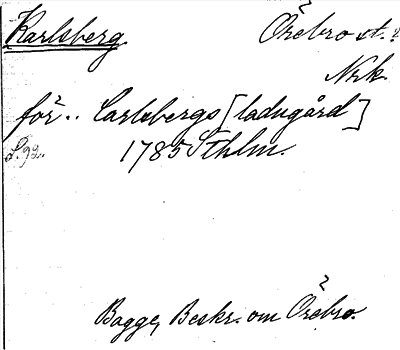 Karlsberg Örebro st.
Nrk.
för.. Carlsbergs [ladugård]
S. 92.. 1785 Sthlm.
Bagge, Beskr. om Örebro.